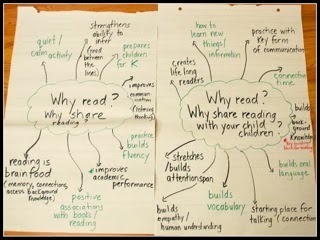 quiet /
calm
activity
strengthens
ability to
infer
(read
between
the
lines)
prepares
children
for K
improves
Why read?
Why share
reading?
practice
builds
fluency
improves
academic
performance
reading is
brain food
(memory, connections,
access background
knowledge)
positive
associations
with books/
reading
how to
learn new
things/
information
practice with
key form of
communication
creates
life long
readers
connecting
time
Why read?
Why share reading
with your child/
children?
builds
back-
ground
knowledge
stretches/
builds
attention span
builds oral
language
builds
empathy/
human understanding
builds
vocabulary
starting place for
talking/connection